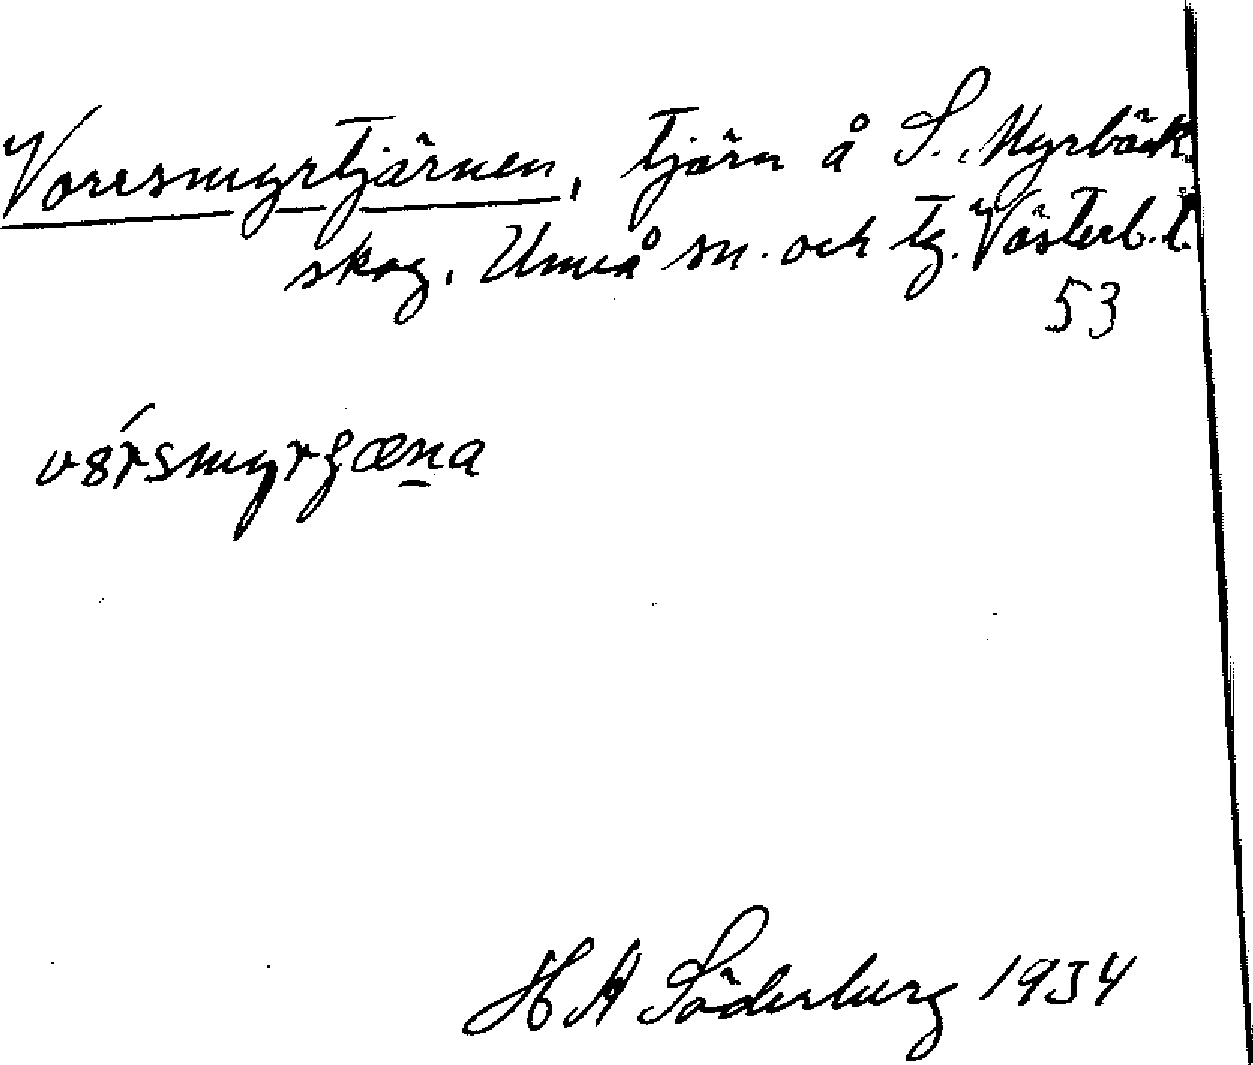 Vorrsmyrtjärnen, tjärn å S. Myrbäck
skog. Umeå sn. och tg. Västerb.l.
53
H A Söderberg 1934